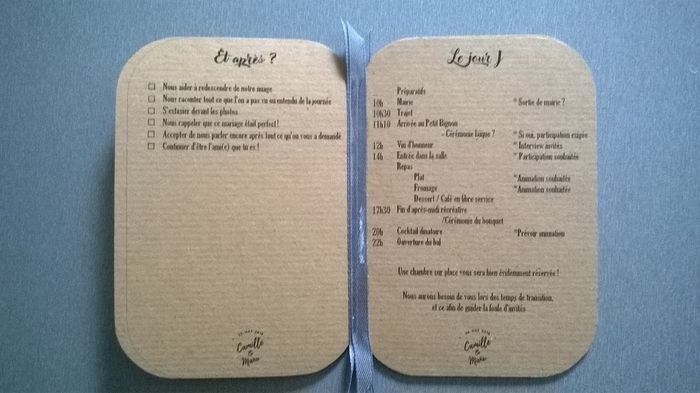 Et après ?
Nous aider à redescendre de notre nuage
Nous raconter tout ce que l'on a pas vu ou entendu de la journée
S'extasier devant les photos
Nous rappeler que ce mariage était parfait !
Accepter de nous parler encore après tout ce qu'on vous a demandé
Continuer d'être l'ami(e) que tu es !
Camille
&
Marc
Le jour J
Préparatifs
10h Mairie *Sortie de mairie ?
10h30 Trajet
11h10 Arrivée au Petit Bignon
- Cérémonie laïque ? * Si oui, participation exigée
12h Vin d'honneur * Interview invités
14h Entrée dans la salle * Participation souhaitée
Repas
Plat *Animation souhaitée
Fromage *Animation souhaitée
Dessert / Café en libre service
17h30 Fin d'après-midi récréative
/Cérémonie du bouquet
20h Cocktail dinatoire *Prévoir animation
22h Ouverture du bal
Une chambre sur place vous sera bien évidemment réservée !
Nous aurons besoin de vous lors des temps de transition,
et ce afin de guider la foule d'invités
Camille
&
Marc